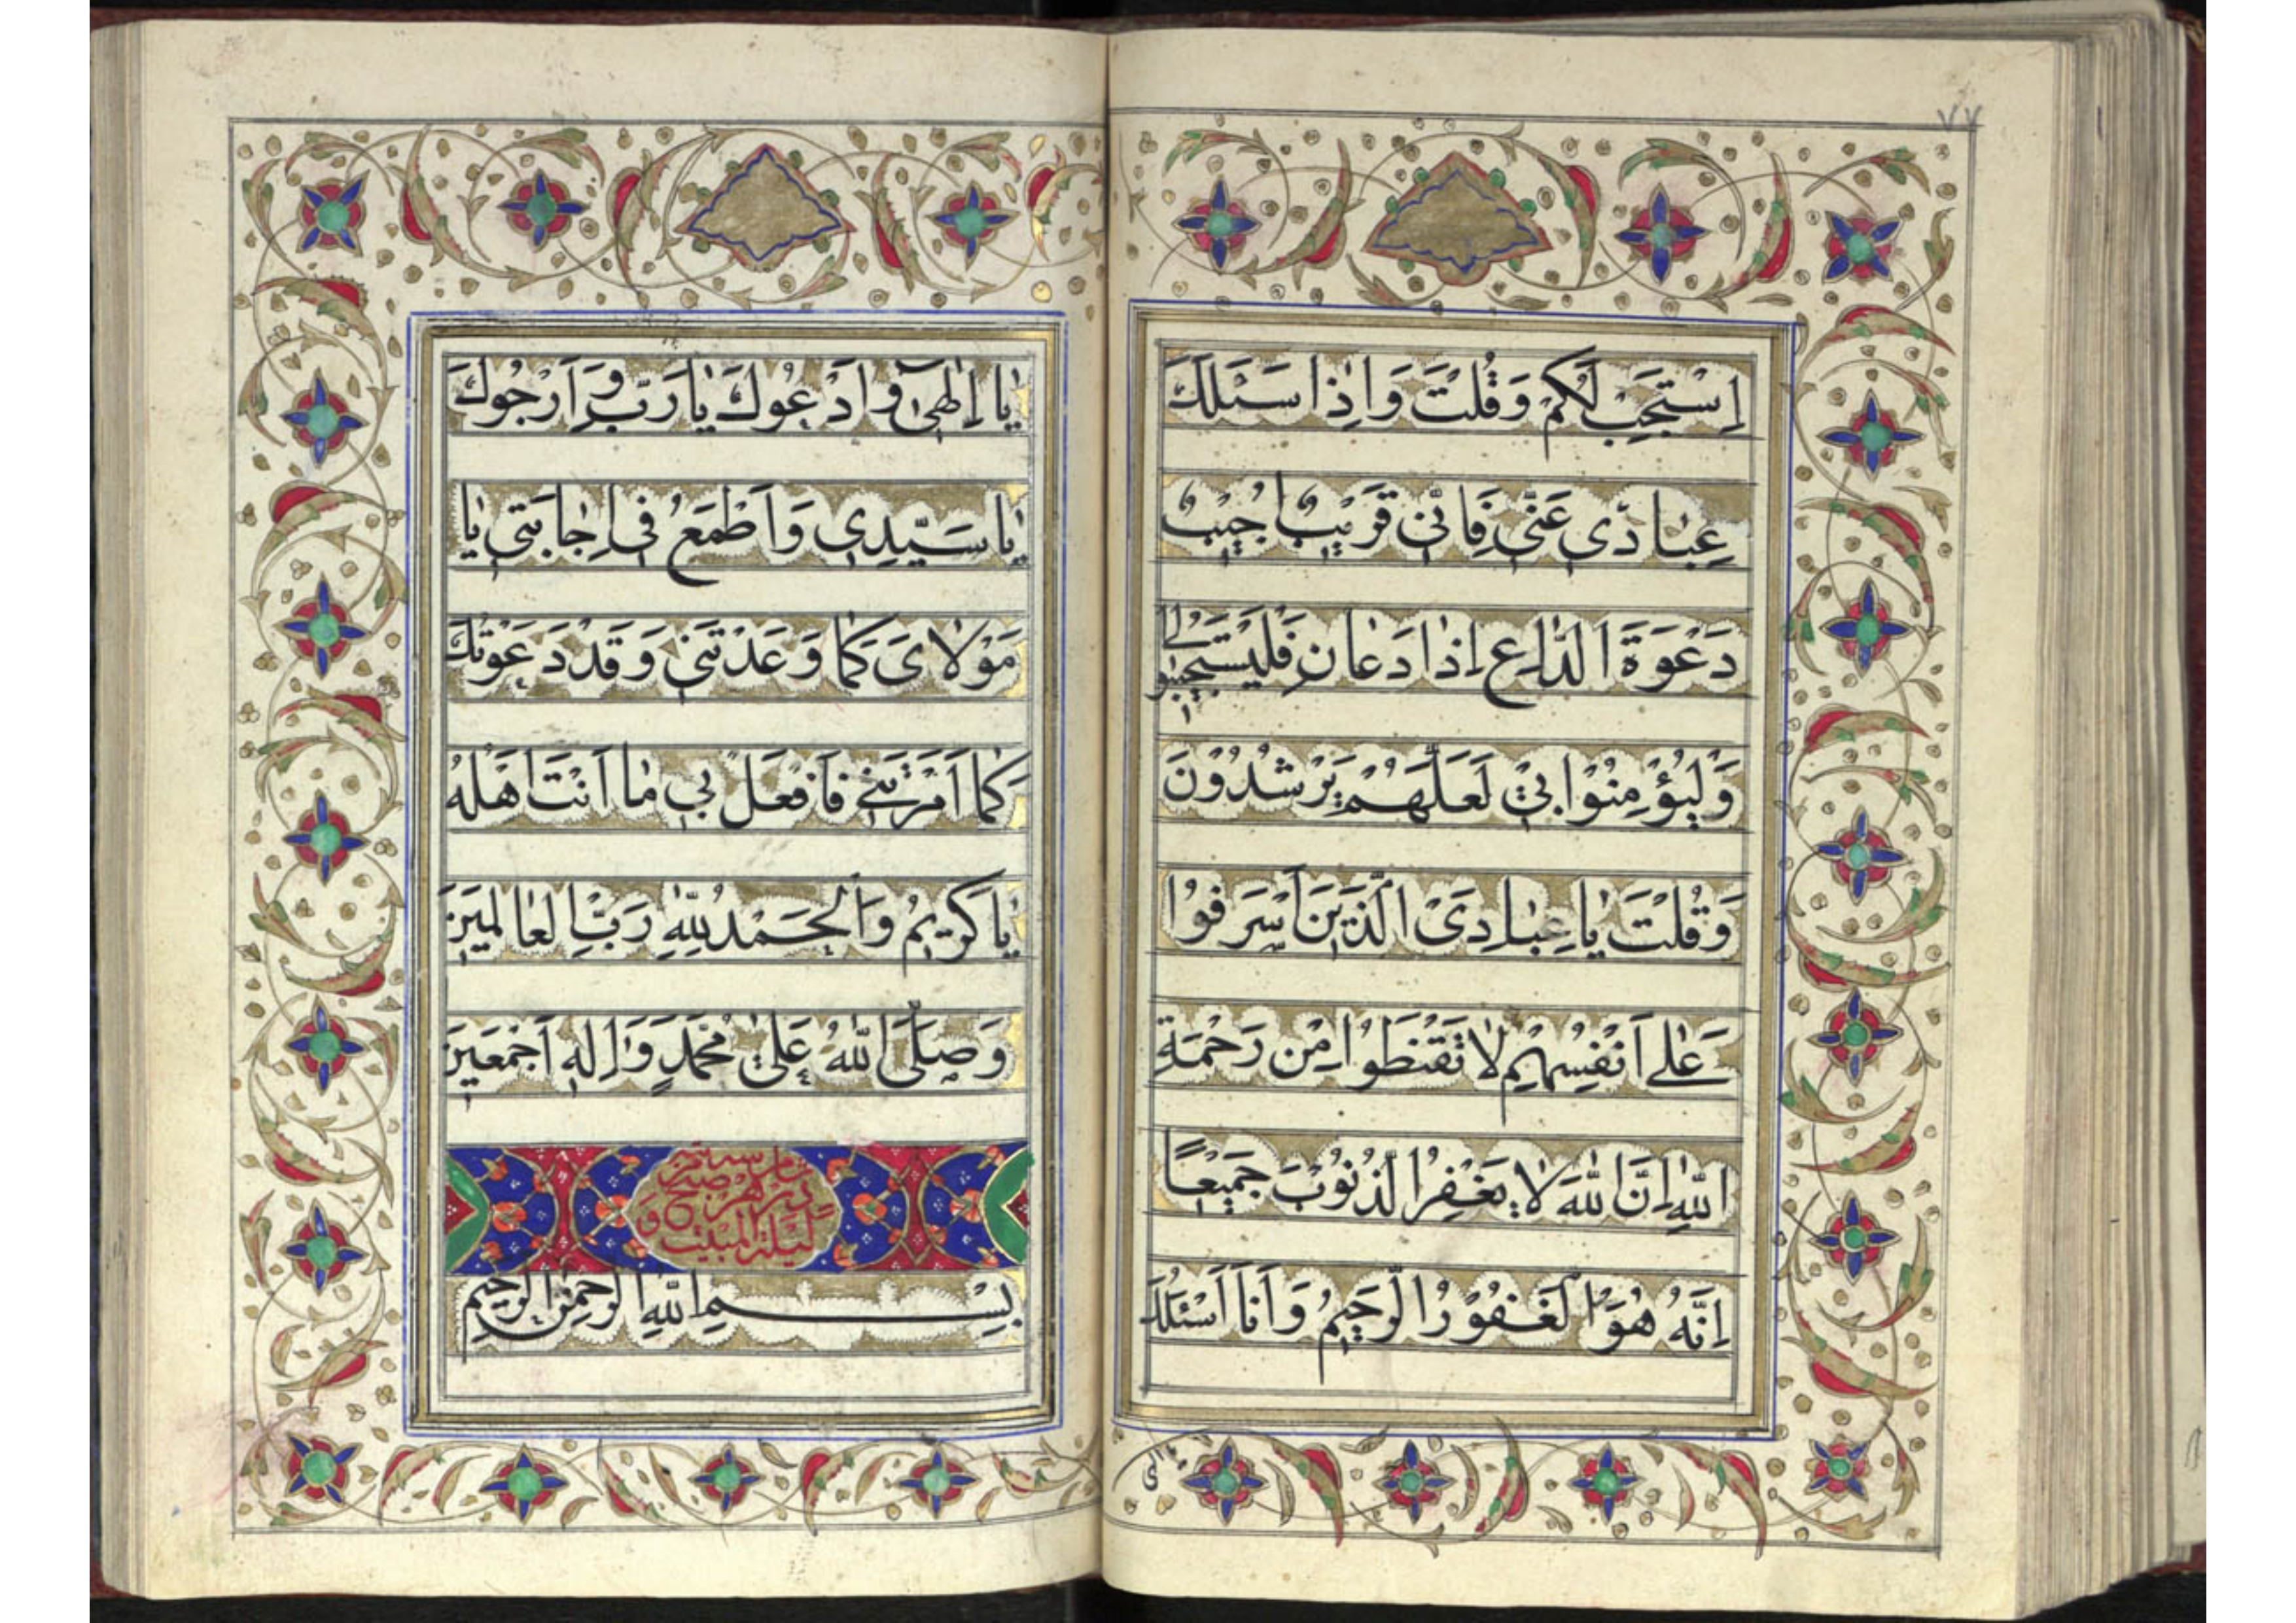 ۷۷
اِسْتَجِبْ لَكُمْ وَقُلْتَ وَاِذا سَئَلَكَ
عِبادی عَنّی فَاِنّی قَریبٌ اُجیبُ
دَعْوَةَ الدّاعِ اِذا دَعانِ فَلْيَسْتَجيبُوا لي
وَلْيُؤْمِنُوا بي لَعَلَّهُمْ يَرْشُدُونَ
وَقُلْتَ يا عِبادِیَ الَّذينَ اَسْرَفُوا
عَلى اَنْفُسِهِمْ لا تَقْنَطُوا مِنْ رَحْمَةِ
اللهِ اِنَّ اللهَ لا يَغْفِرُ الذُّنُوبَ جَميعًا
اِنَّهُ هُوَ الْغَفُورُ الرَّحيمُ وَاَنَا اَسْئَلُكَ
يا الهی
يا اِلٰهی وَاَدْعُوكَ يا رَبِّ وَاَرْجُوكَ
يا سَيِّدی وَاَطْمَعُ فی اِجابَتی يا
مَوْلایَ كَما وَعَدْتَنی وَقَدْ دَعَوْتُكَ
كَما اَمَرْتَنی فَافْعَلْ بی ما اَنْتَ اَهْلُهُ
يا كَريمُ وَالْحَمْدُ لِلّٰهِ رَبِّ الْعالَمينَ
وَصَلَّی اللهُ عَلیٰ مُحَمَّدٍ وَاٰلِهِ اَجْمَعينَ
در هر صبح و
ليلة المبيت
بِسْمِ اللهِ الرَّحْمٰنِ الرَّحيمِ